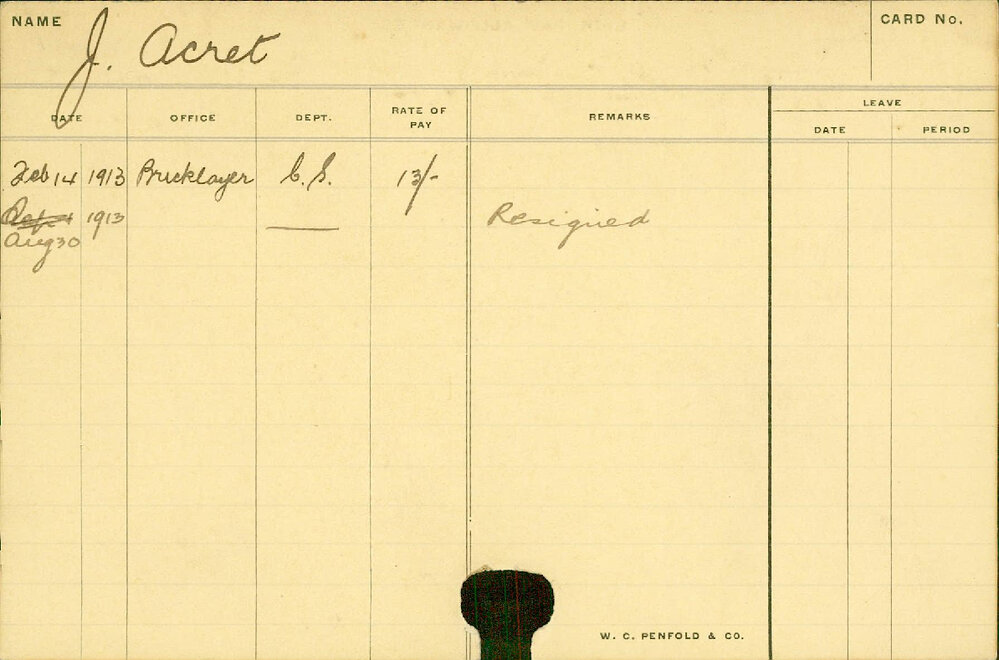 NAME J. Acret CARD No.
LEAVE
DATE OFFICE DEPT. RATE OF PAY REMARKS DATE PERIOD
Feb 14 1913 Bricklayer C.S. 13/-
1913 Resigned
Aug 30
W. C. PENFOLD & CO.